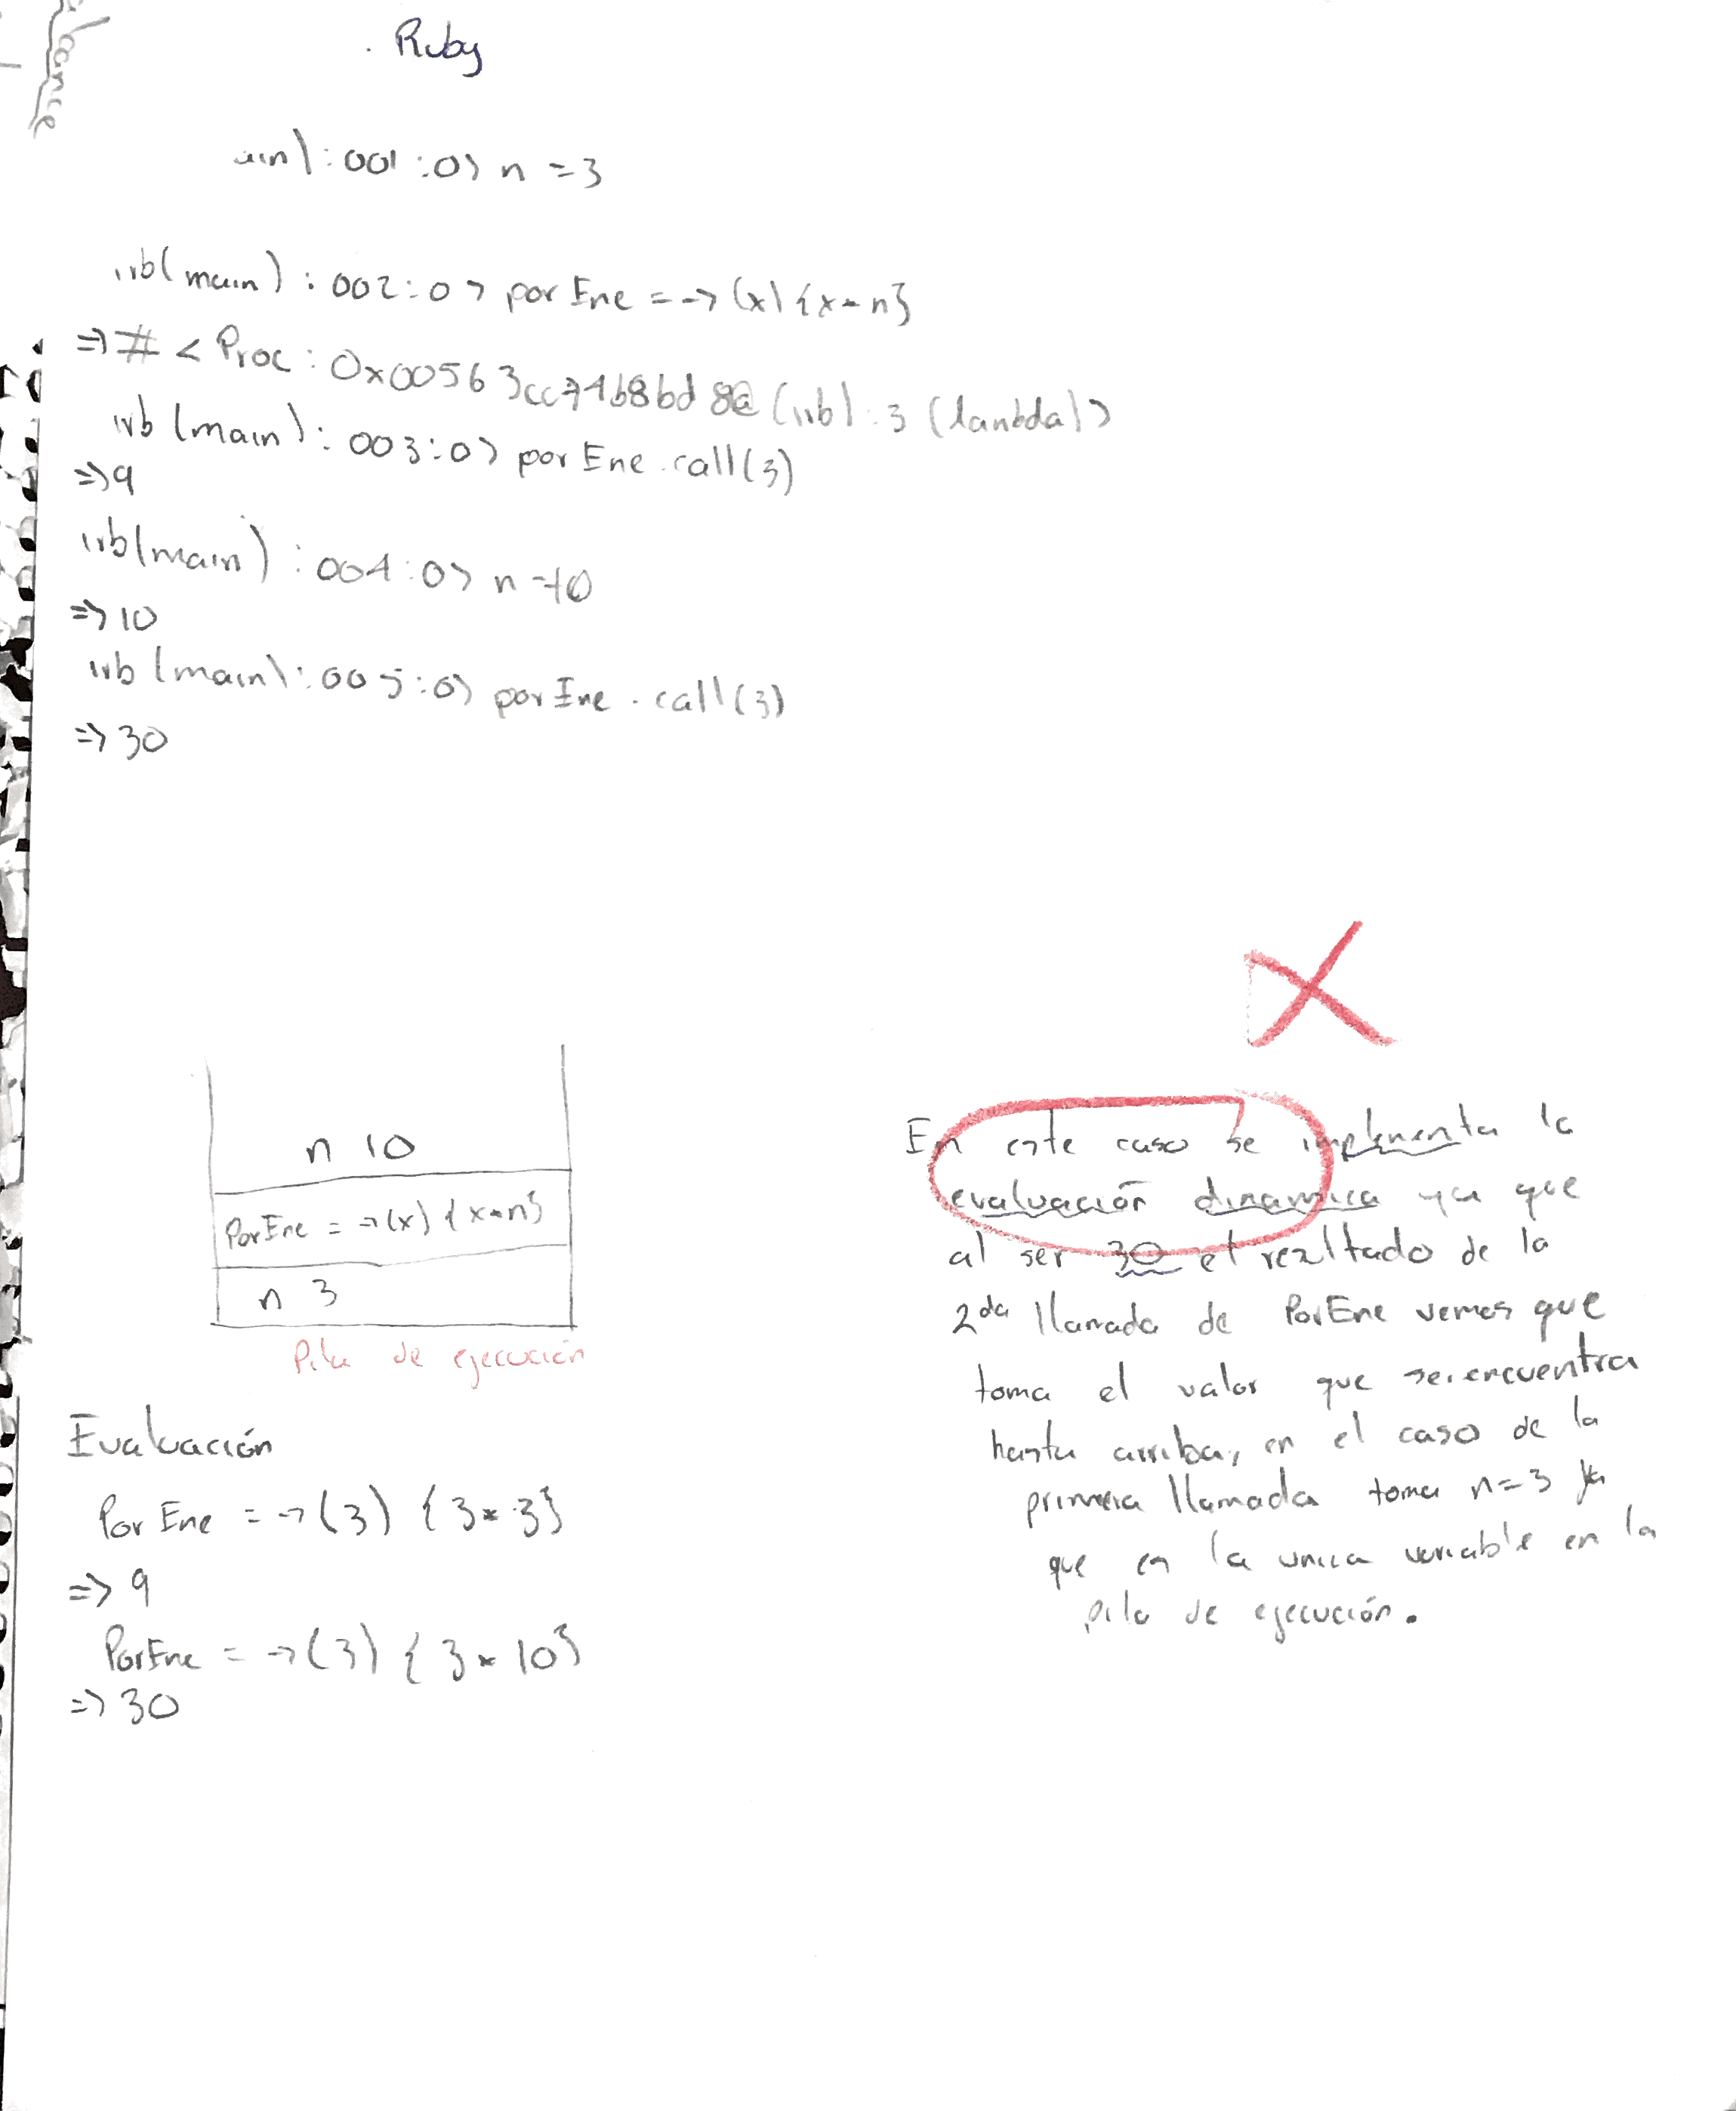 . Ruby
ain):001:0> n = 3
irb(main):002:0> porEne = -> (x) {x * n}
=> # < Proc: 0x00563cc74b8bd8@(irb):3 (lambda)>
irb (main):003:0> porEne.call(3)
=> 9
irb(main):004:0> n = 10
=> 10
irb (main):005:0> porEne.call(3)
=> 30
n 10
PorEne = ->(x) {x * n}
n 3
Pila de ejecución
Evaluación
PorEne = ->(3) {3 * 3}
=> 9
PorEne = ->(3) {3 * 10}
=> 30
En este caso se implementa la
evaluación dinamica ya que
al ser 30 el rezltado de la
2da llamada de PorEne vemos que
toma el valor que se encuentra
hasta arriba, en el caso de la
primera llamada toma n=3 ya
que es la unica variable en la
pila de ejecución.